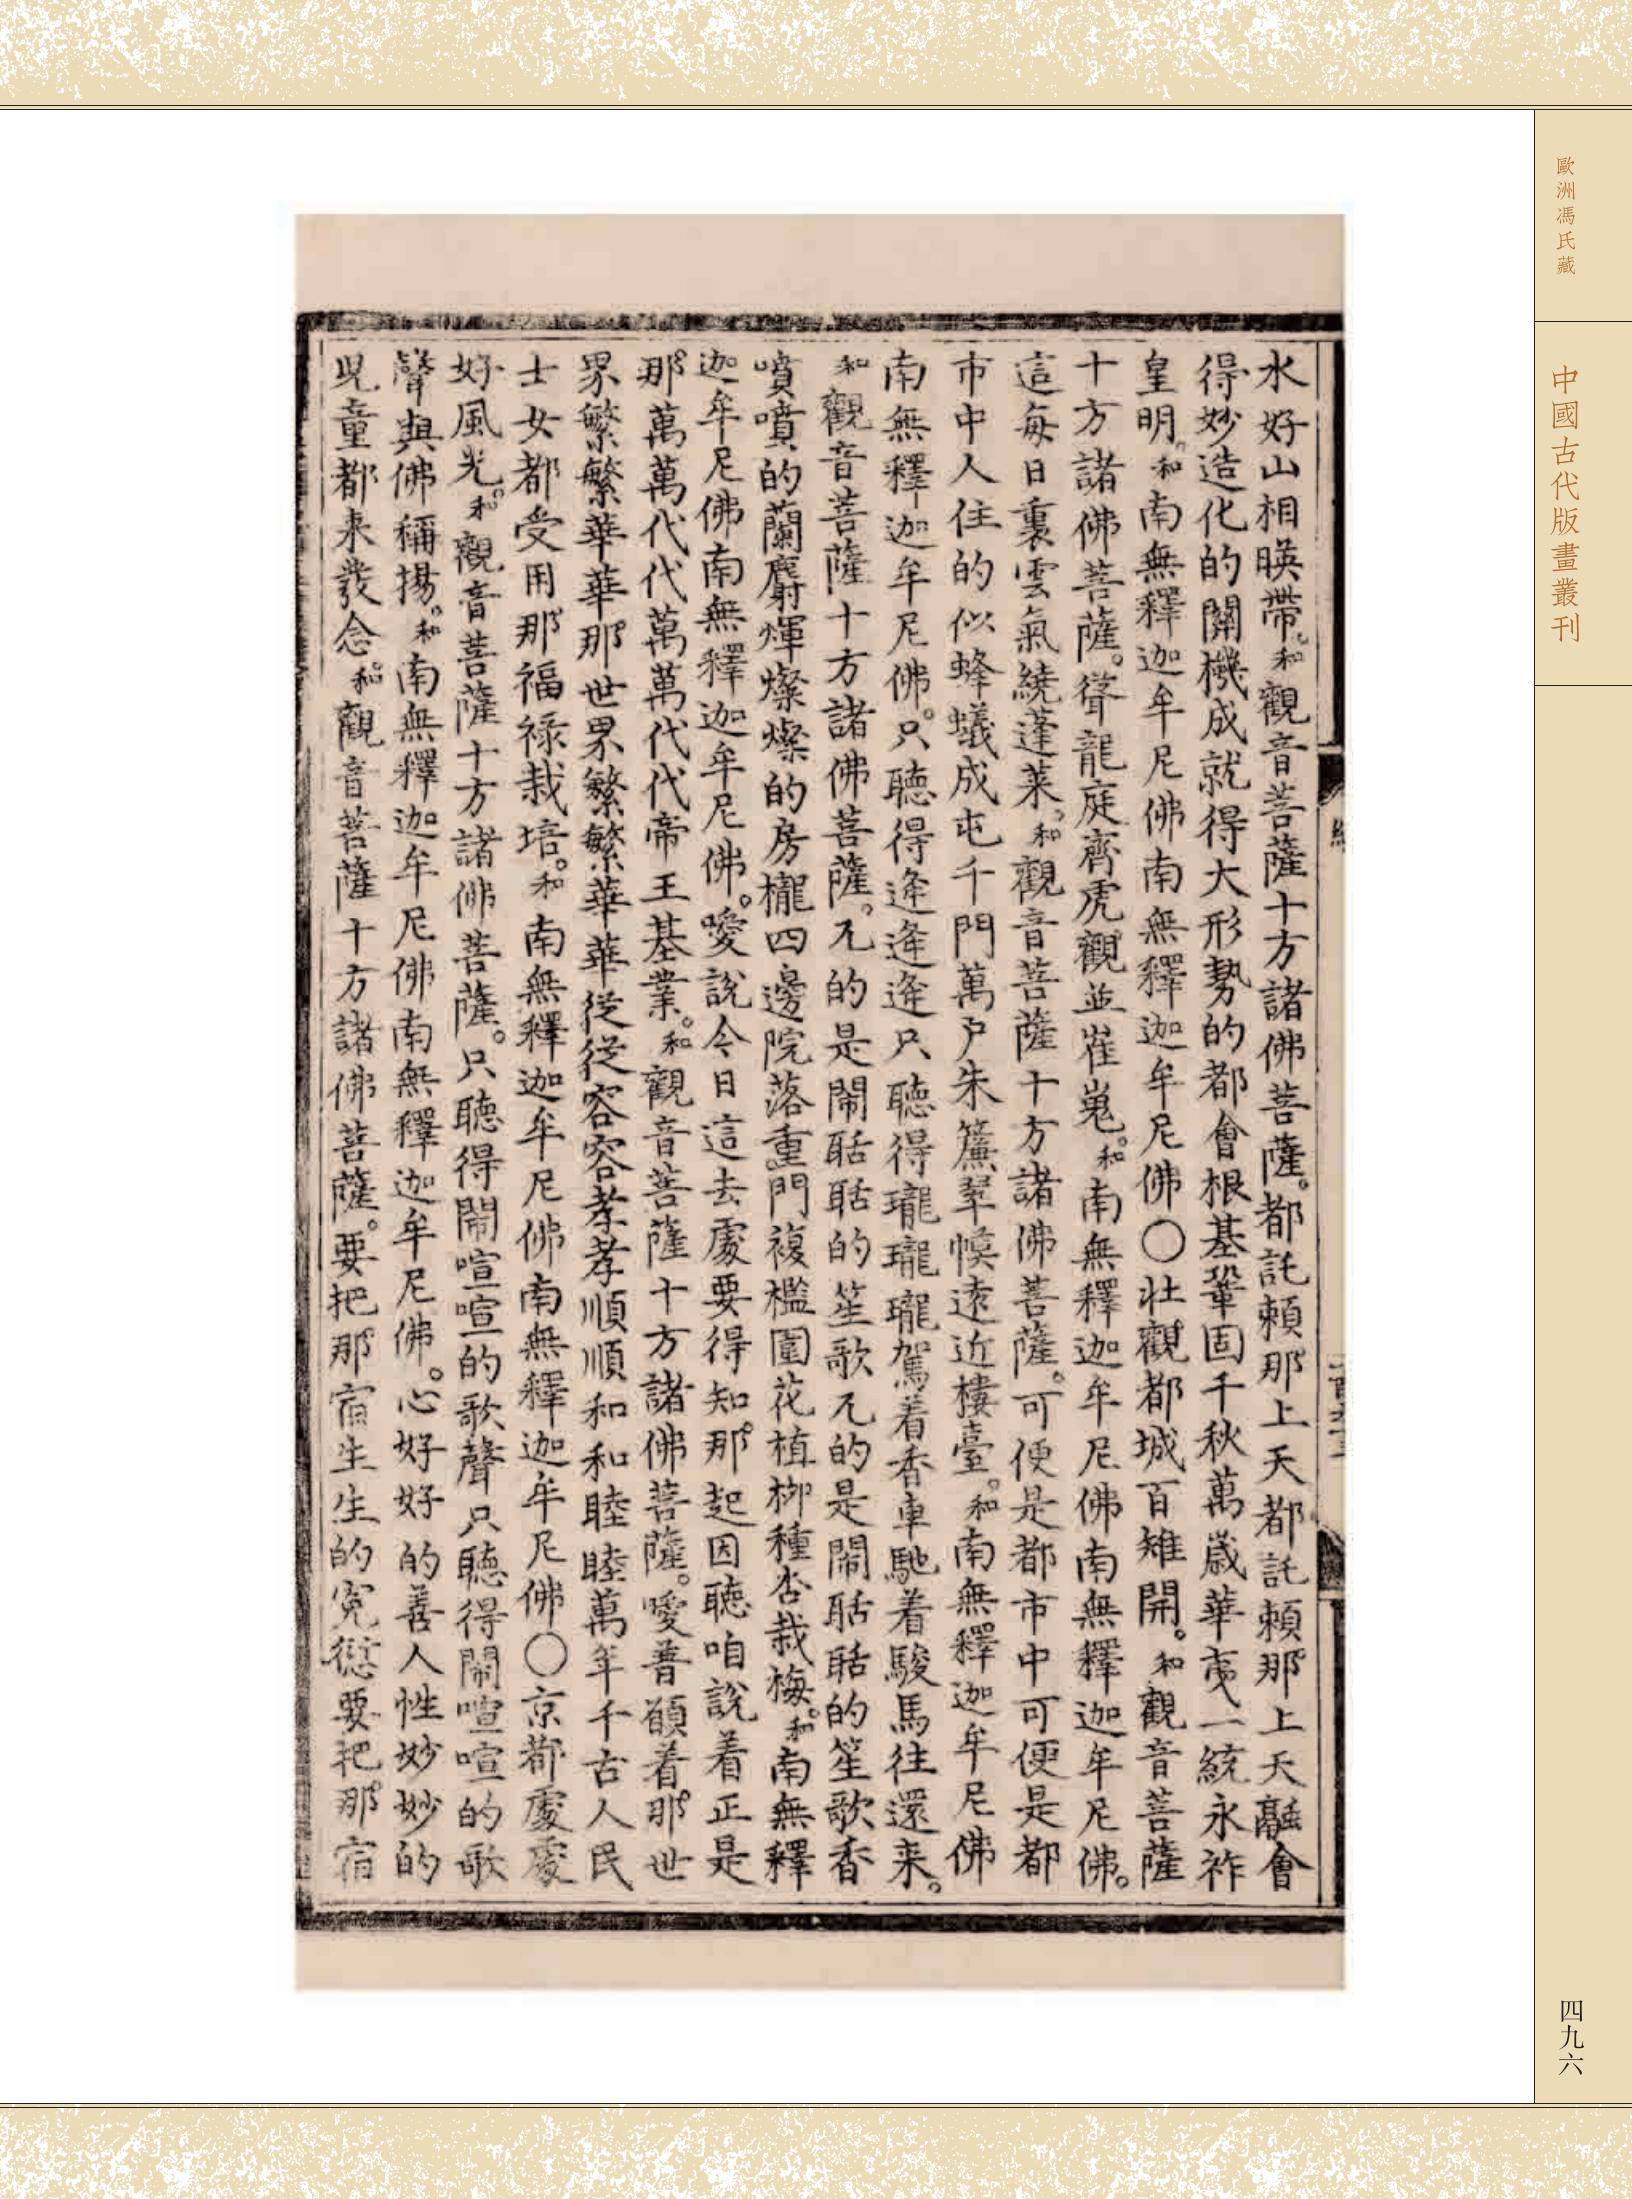 歐洲馮氏藏
中國古代版畫叢刊
水好山相暎帶。和觀音菩薩十方諸佛菩薩。都託賴那上天都託賴那上天䰟會
得妙造化的關機成就得大形勢的都會根基鞏固千秋萬歲華夷一統永祚
皇明。和南無釋迦牟尼佛南無釋迦牟尼佛〇壯觀都城百雉開。和觀音菩薩
十方諸佛菩薩。聳龍庭齊虎觀並崔嵬。和南無釋迦牟尼佛南無釋迦牟尼佛。
這每日裏雲氣繞蓬莱。和觀音菩薩十方諸佛菩薩。可便是都市中可便是都
市中人住的似蜂蟻成屯千門萬戶朱簾翠幙遠近樓臺。和南無釋迦牟尼佛
南無釋迦牟尼佛。只聽得逄逄逄只聽得瓏瓏瓏駕着香車馳着駿馬往還来。
和觀音菩薩十方諸佛菩薩。兀的是鬧聒聒的笙歌兀的是鬧聒聒的笙歌香
噴噴的蘭麝煇燦燦的房櫳四邊院落重門複檻圍花植柳種杏栽梅。和南無釋
迦牟尼佛南無釋迦牟尼佛。噯說今日這去處要得知那起因聽咱說着正是
那萬萬代代萬萬代代帝王基業。和觀音菩薩十方諸佛菩薩。噯普願着那世
界繁繁華華那世界繁繁華華從從容容孝孝順順和和睦睦萬年千古人民
士女都受用那福禄栽培。和南無釋迦牟尼佛南無釋迦牟尼佛〇京都處處
好風光。和觀音菩薩十方諸佛菩薩。只聽得鬧喧喧的歌聲只聽得鬧喧喧的歌
聲與佛稱揚。和南無釋迦牟尼佛南無釋迦牟尼佛。心好好的善人性妙妙的
児童都来發念。和觀音菩薩十方諸佛菩薩。要把那宿生生的寃愆要把那宿
四九六